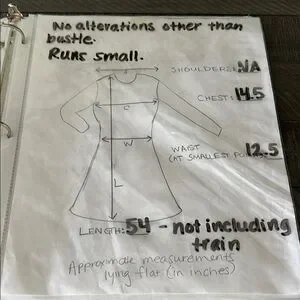 No alterations other than
bustle.
Runs small.
SHOULDERS: NA
C
CHEST: 14.5
W
WAIST
(AT SMALLEST POINT): 12.5
L
LENGTH: 54 - not including
train
Approximate measurements
lying flat (in inches)